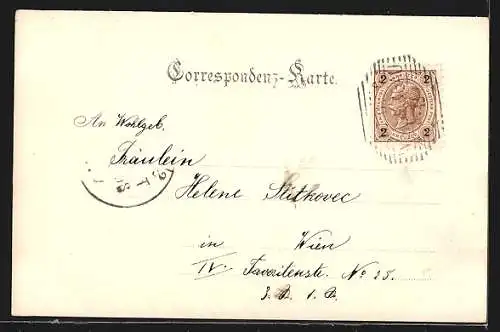 Correspondenz-Karte.
2 2
2 2
An Wohlgeb.
Fräulein
Helene Slitkovec
in Wien
IV. Favoritenstr. No 25.
3. B. 1. B.